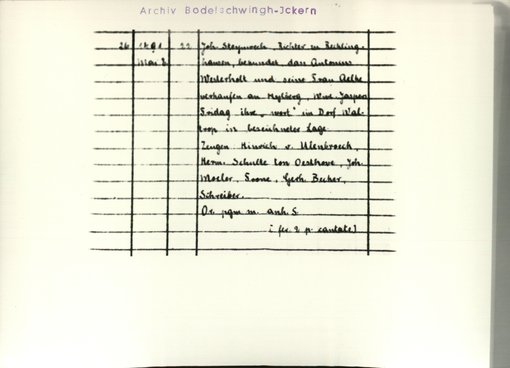 Archiv Bodelschwingh-Ickern
26 1491 22 Joh. Steynwech, Richter in Reckling-
Mai 2. hausen, bekundet, dass Antonius
Westerholt und seine Frau Aelke
verkaufen an Wwe. Jasper
Fridag ihre "wort" im Dorf Wal-
trop in bezeichneter Lage
Zeugen Hinrich v. Ulenbroech,
Herm. Schulte ton Oesthove, Joh.
Moeler, Frone, Gerh. Becker,
Schreiber.
Or. pgm. m. anh. S.
[fer. 2 p. cantate]